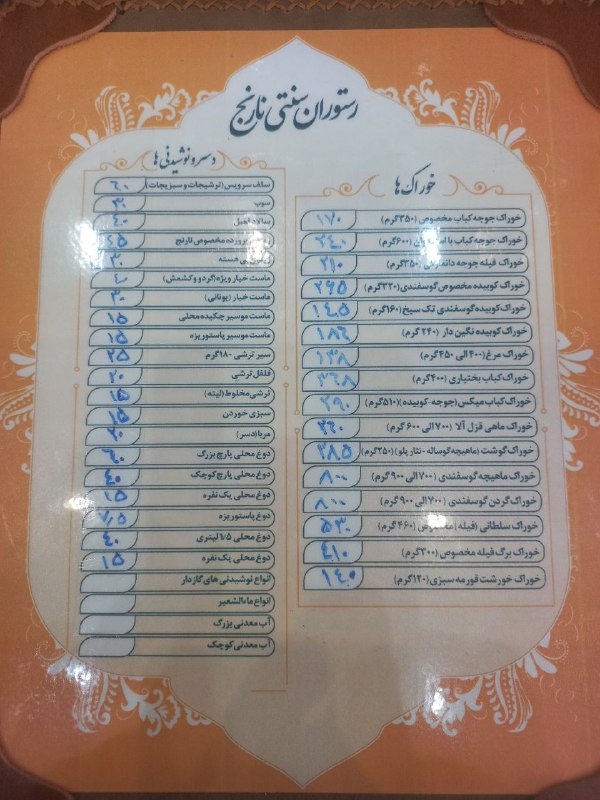 رستوران سنتی نارنج
خوراک ها
خوراک جوجه کباب مخصوص (۳۵۰گرم) ۱۷۰
خوراک جوجه کباب با استخوان (۶۰۰گرم) ۲۴۰
خوراک فیله جوجه (۳۵۰گرم) ۲۱۰
خوراک کوبیده مخصوص گوسفندی (۳۲۰گرم) ۲۹۵
خوراک کوبیده گوسفندی تک سیخ (۱۶۰گرم) ۱۴۵
خوراک کوبیده نگین دار (۲۴۰گرم) ۱۸۶
خوراک مرغ (۴۰۰ الی ۴۵۰گرم) ۱۳۸
خوراک کباب بختیاری (۴۰۰گرم) ۳۶۸
خوراک کباب میکس (جوجه-کوبیده) (۵۱۰گرم) ۲۹۰
خوراک ماهی قزل آلا (۷۰۰ الی ۶۰۰ گرم)
خوراک گوشت (ماهیچه گوساله - نثار پلو) (۲۵۰گرم) ۳۸۵
خوراک ماهیچه گوسفندی (۷۰۰ الی ۹۰۰گرم) ۸۰۰
خوراک گردن گوسفندی (۷۰۰ الی ۹۰۰گرم) ۸۰۰
خوراک سلطانی (فیله) مخصوص (۴۶۰گرم) ۵۳۰
خوراک برگ فیله مخصوص (۳۰۰گرم) ۴۱۰
خوراک خورشت قورمه سبزی (۱۲۰گرم) ۱۴۰
دسر و نوشیدنی ها
سلف سرویس (ترشیجات و سبزیجات) ۶۰
سوپ ۳۰
سالاد فصل ۴۰
پرورده مخصوص نارنج ۴۵
هسته ۳۰
ماست خیار ویژه (گردو و کشمش) ۴۰
ماست خیار (یونانی) ۳۰
ماست موسیر چکیده محلی ۱۵
ماست موسیر پاستوریزه ۱۵
سیر ترشی ۱۸۰گرم ۲۵
فلفل ترشی ۲۰
ترشی مخلوط (لیته) ۱۵
سبزی خوردن ۱۵
مربا (دسر) ۲۰
دوغ محلی پارچ بزرگ
دوغ محلی پارچ کوچک
دوغ محلی یک نفره ۱۵
دوغ پاستوریزه
دوغ محلی ۱/۵ لیتری ۴۰
دوغ محلی یک نفره ۱۵
انواع نوشیدنی های گازدار
انواع ماءالشعیر
آب معدنی بزرگ
آب معدنی کوچک